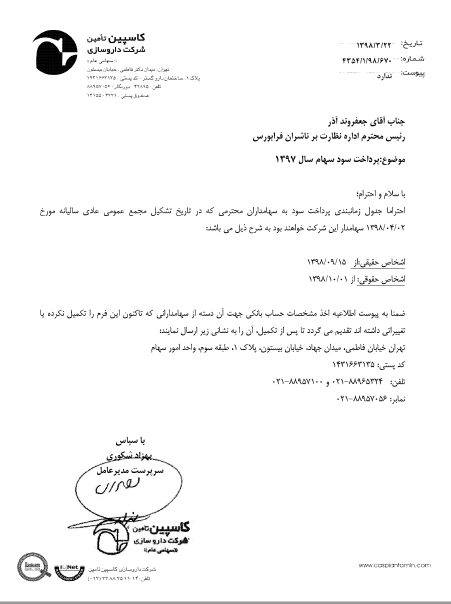 کاسپین تأمین
شرکت داروسازی
(سهامی عام)
تهران، میدان دکتر فاطمی، خیابان بیستون
پلاک ۱، ساختمان داروگستر - کد پستی: ۱۴۳۱۶۶۳۱۳۵
تاریخ: ۱۳۹۸/۳/۲۲
شماره: ۴۳۵۴/۱/۹۸/۶۷۰
پیوست: ندارد
جناب آقای جعفروند آذر
رئیس محترم اداره نظارت بر ناشران فرابورس
موضوع:پرداخت سود سهام سال ۱۳۹۷
با سلام و احترام؛
احتراما جدول زمانبندی پرداخت سود به سهامداران محترمی که در تاریخ تشکیل مجمع عمومی عادی سالیانه مورخ
۱۳۹۸/۰۴/۰۲ سهامدار این شرکت خواهند بود به شرح ذیل می باشد:
اشخاص حقیقی:از ۱۳۹۸/۰۹/۱۵
اشخاص حقوقی: از ۱۳۹۸/۱۰/۰۱
ضمنا به پیوست اطلاعیه اخذ مشخصات حساب بانکی جهت آن دسته از سهامدارانی که تاکنون این فرم را تکمیل نکرده یا
تغییراتی داشته اند تقدیم می گردد تا پس از تکمیل، آن را به نشانی زیر ارسال نمایند:
تهران خیابان فاطمی، میدان جهاد، خیابان بیستون، پلاک ۱، طبقه سوم، واحد امور سهام
کد پستی: ۱۴۳۱۶۶۳۱۳۵
تلفن: ۸۸۹۶۵۳۲۴-۰۲۱ و ۸۸۹۵۷۱۰۰-۰۲۱
نمابر: ۸۸۹۵۷۰۵۶-۰۲۱
با سپاس
بهزاد شکوری
سرپرست مدیرعامل
کاسپین تأمین
شرکت داروسازی
(سهامی عام)
شرکت داروسازی کاسپین تأمین
www.caspiantamin.com